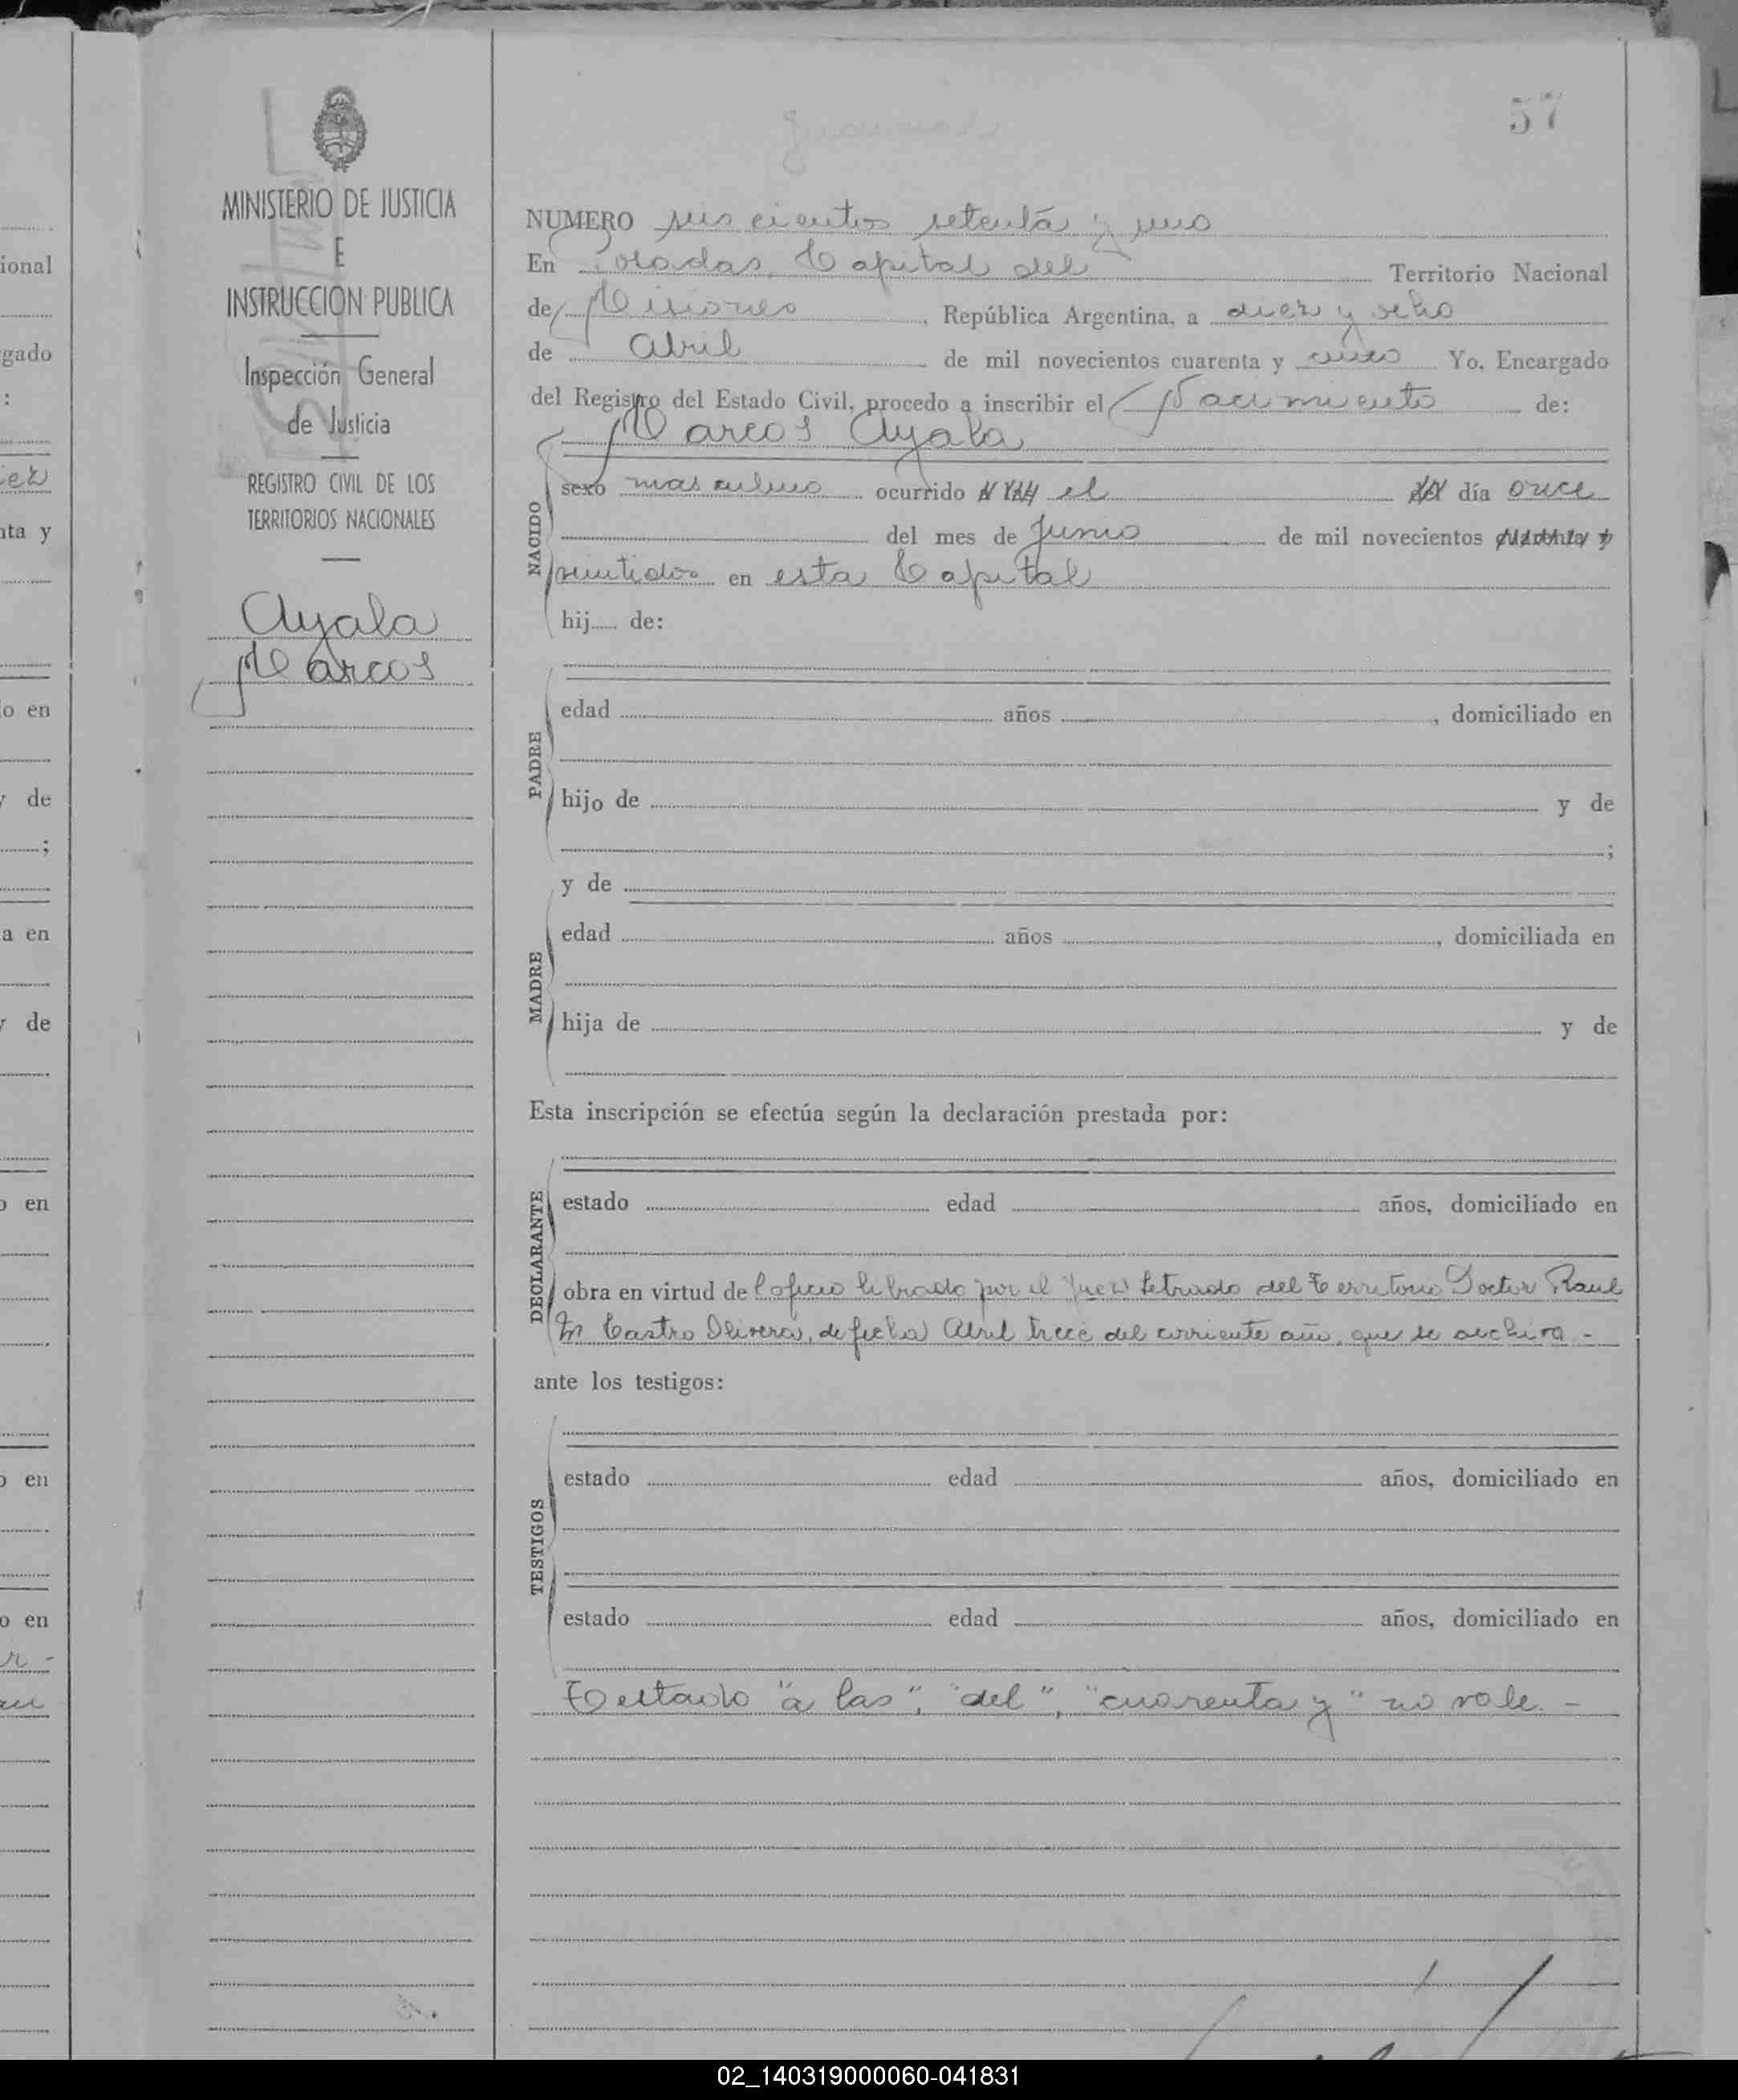 57
MINISTERIO DE JUSTICIA
E
INSTRUCCION PUBLICA
Inspección General
de Justicia
REGISTRO CIVIL DE LOS
TERRITORIOS NACIONALES
Ayala
Marcos
NUMERO seis cientos setenta y uno
En Posadas, Capital del Territorio Nacional
de Misiones, República Argentina, a diez y ocho
de Abril de mil novecientos cuarenta y cinco Yo, Encargado
del Registro del Estado Civil, procedo a inscribir el Nacimiento de:
Marcos Ayala
NACIDO
sexo masculino ocurrido a las el del día once
del mes de Junio de mil novecientos cuarenta y
veintidos en esta Capital
hij de:
PADRE
edad años , domiciliado en
hijo de y de
;
y de
MADRE
edad años , domiciliada en
hija de y de
Esta inscripción se efectúa según la declaración prestada por:
DECLARANTE
estado edad años, domiciliado en
obra en virtud de oficio librado por el Juez Letrado del Territorio Doctor Raul
M Castro Olivera, de fecha Abril trece del corriente año, que se archiva.-
ante los testigos:
TESTIGOS
estado edad años, domiciliado en
estado edad años, domiciliado en
Testado "a las", "del", "cuarenta y" no vale.-
ional
gado
:
ez
nta y
o en
y de
;
a en
y de
o en
o en
o en
02_140319000060-041831